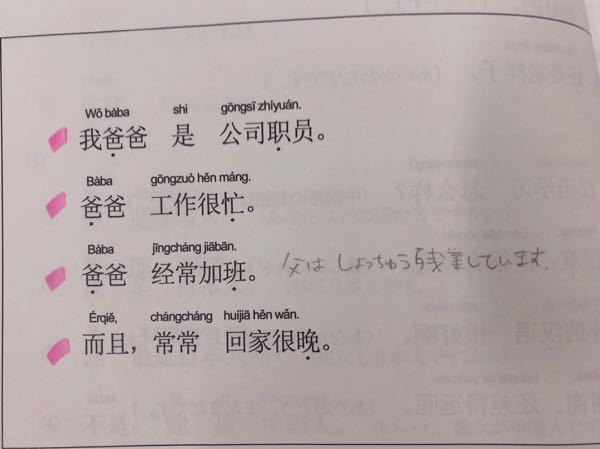 Wǒ bàba shì gōngsī zhíyuán.
我爸爸 是 公司职员。
Bàba gōngzuò hěn máng.
爸爸 工作很忙。
Bàba jīngcháng jiābān.
爸爸 经常加班。 父は しょっちゅう残業しています.
Érqiě, chángcháng huíjiā hěn wǎn.
而且，常常 回家很晚。